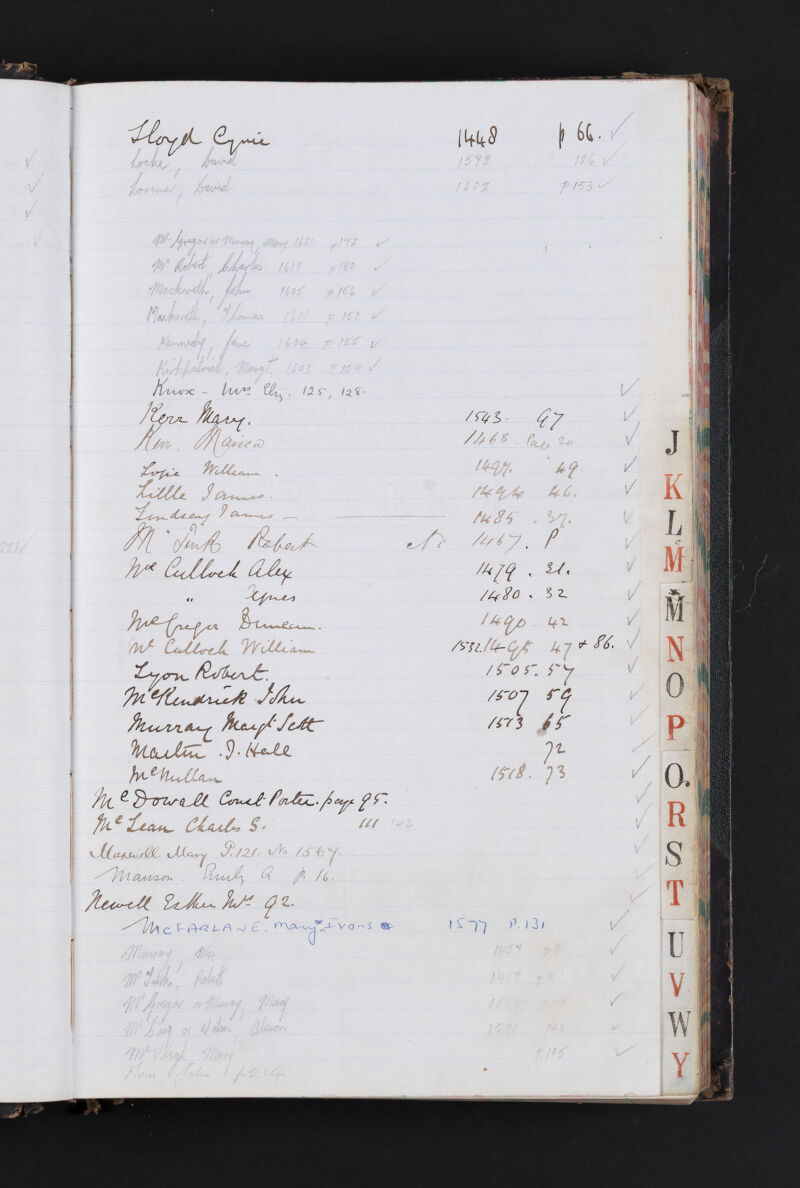 Lloyd Cyric 1448 p 66. ✓
Locke, David 1592 126 ✓
Lorimer, David 1602 p153 ✓
Mc Gregor or Murray, Mary 1621 p192 ✓
Mc Robert, Charles 1619 p180 ✓
Mackereth, John 1605 p156 ✓
Mackereth, Thomas 1601 p.152 ✓
Kennedy, Jane 1604 p155 ✓
Kirkpatrick, Margt. 1603 p154 ✓
Knox - Mrs Eliz. 125, 128. ✓
Kerr Mary. 1543. 97 ✓
Kerr 1468. Page 20 ✓
Logie William. 1497. 49 ✓
Little James. 1494 46. ✓
Lindsay James — 1485. 37. ✓
Mc Turk Robert No 1467. P ✓
Mc Culloch Alex 1479. 31. ✓
" Agnes 1480. 32 ✓
McGregor Duncan. 1490. 42 ✓
Mc Culloch William 1532 1495 47 + 86. ✓
Lyon Robert. 1505. 57 ✓
McKendrick John 1507 59 ✓
Murray Margt Sett 1513 65 ✓
Martin. J. Hall 72 ✓
McMillan 1518. 73 ✓
Mc Dowall Const Porter. page 95. ✓
Mc Lean Charles S. 111 142 ✓
Maxwell Mary P.121. No. 1567. ✓
Manson. Emily A. p. 16. ✓
Newell Esther Mrs 92. ✓
McFARLANE. Mary or Irons 1577 P.131 ✓
Murray, Mrs 1457 p9 ✓
Mc Turk, Robert 1467 p19 ✓
Mc Gregor or Murray, Mary 1569 ✓
Mc or Watson, Alison ✓
Mc Mary p195 ✓
John p214
J
K
L
Mc
M
N
O
P
Q.
R
S
T
U
V
W
Y
221 ✓